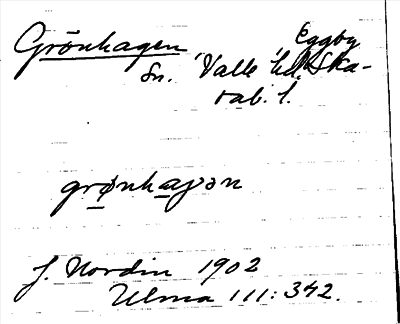 Grönhagen Eggby
Sn. Valle hd. Ska-
rab. l.
grønhaɡən
J. Nordin 1902
Ulma 111:342.